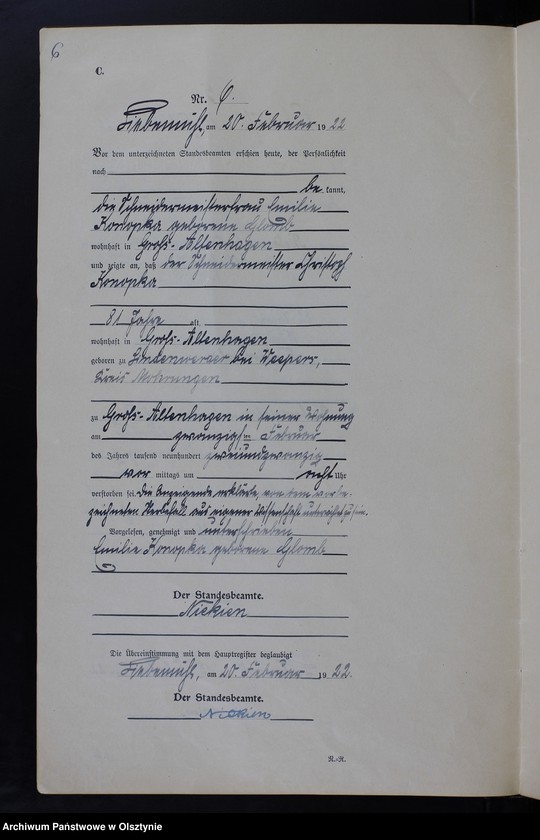 6
C.
Nr. 6.
Liebemühl, am 20. Februar 1922
Vor dem unterzeichneten Standesbeamten erschien heute, der Persönlichkeit
nach
be kannt,
die Schneidermeisterfrau Emilie
Konopka geborene Glomb
wohnhaft in Groß-Altenhagen
und zeigte an, daß der Schneidermeister Christoph
Konopka
81 Jahre alt,
wohnhaft in Groß-Altenhagen
geboren zu bei Weepers,
Kreis Mohrungen
zu Groß-Altenhagen in seiner Wohnung
am zwanzigsten Februar
des Jahres tausend neunhundert zweiundzwanzig
vor mittags um acht Uhr
verstorben sei. Die Anzeigende erklärte, von dem vorbe-
zeichneten Sterbefall aus eigener Wissenschaft unterrichtet zu sein.
Vorgelesen, genehmigt und unterschrieben
Emilie Konopka geborene Glomb
Der Standesbeamte.
Niekien
Die Übereinstimmung mit dem Hauptregister beglaubigt
Liebemühl, am 20. Februar 1922.
Der Standesbeamte.
Niekien
R.-R.
Archiwum Państwowe w Olsztynie